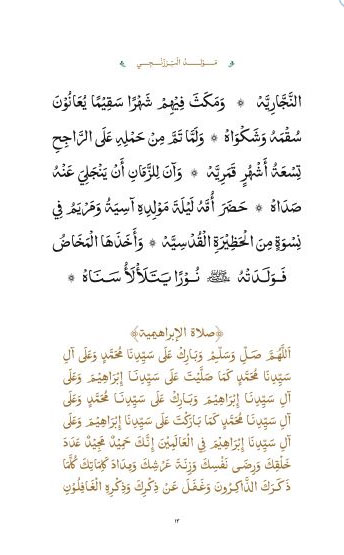 مَوْلِـدُ الْبَرْزَنْجِـي
النَّجَّارِيَّهْ ۞ وَمَكَثَ فِيْهِمْ شَهْرًا سَقِيْمًا يُعَانُوْنَ
سُقْمَهُ وَشَكْوَاهْ ۞ وَلَمَّا تَمَّ مِنْ حَمْلِهِ عَلَى الرَّاجِحِ
تِسْعَةُ أَشْهُرٍ قَمَرِيَّهْ ۞ وَآنَ لِلزَّمَانِ أَنْ يَنْجَلِيَ عَنْهُ
صَدَاهْ ۞ حَضَرَ أُمَّهُ لَيْلَةَ مَوْلِدِهِ آسِيَةُ وَمَرْيَمُ فِي
نِسْوَةٍ مِنَ الْحَظِيْرَةِ الْقُدْسِيَّهْ ۞ وَأَخَذَهَا الْمَخَاضُ
فَوَلَدَتْهُ ﷺ نُوْرًا يَتَلَأْلَأُ سَنَاهْ ۞
﴿صلاة الإبراهيمية﴾
اَللَّهُمَّ صَلِّ وَسَلِّمْ وَبَارِكْ عَلَى سَيِّدِنَا مُحَمَّدٍ وَعَلَى آلِ
سَيِّدِنَا مُحَمَّدٍ كَمَا صَلَّيْتَ عَلَى سَيِّدِنَا إِبْرَاهِيْمَ وَعَلَى آلِ
سَيِّدِنَا إِبْرَاهِيْمَ وَبَارِكْ عَلَى سَيِّدِنَا مُحَمَّدٍ وَعَلَى
آلِ سَيِّدِنَا مُحَمَّدٍ كَمَا بَارَكْتَ عَلَى سَيِّدِنَا إِبْرَاهِيْمَ وَعَلَى
آلِ سَيِّدِنَا إِبْرَاهِيْمَ فِي الْعَالَمِيْنَ إِنَّكَ حَمِيْدٌ مَجِيْدٌ عَدَدَ
خَلْقِكَ وَرِضَى نَفْسِكَ وَزِنَةَ عَرْشِكَ وَمِدَادَ كَلِمَاتِكَ كُلَّمَا
ذَكَرَكَ الذَّاكِرُونَ وَغَفَلَ عَنْ ذِكْرِكَ وَذِكْرِهِ الْغَافِلُوْنَ
١٣